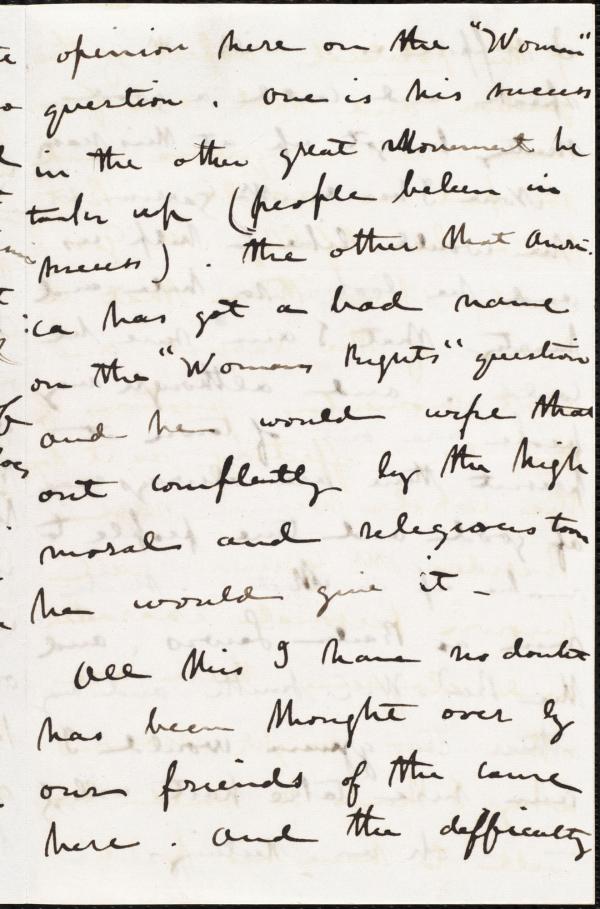 opinion here on the "Woman"
question. One is his success
in the other great Movement he
takes up (people believe in
success). The other that Ameri:
ca has got a bad name
on the "Womans Rights" question
and he would wipe that
out completely by the high
moral and religious tone
he would give it -
All this I have no doubt
has been thought over by
our friends of the cause
here. and the difficulty